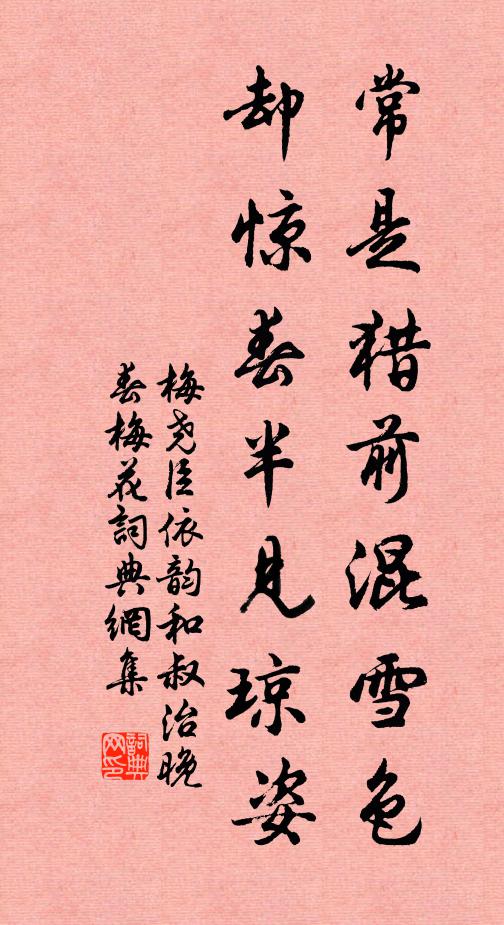 常是猎前混雪色
却惊春半见琼姿
梅尧臣依韵和叔治晚
春梅花詞典網集
詞典网印